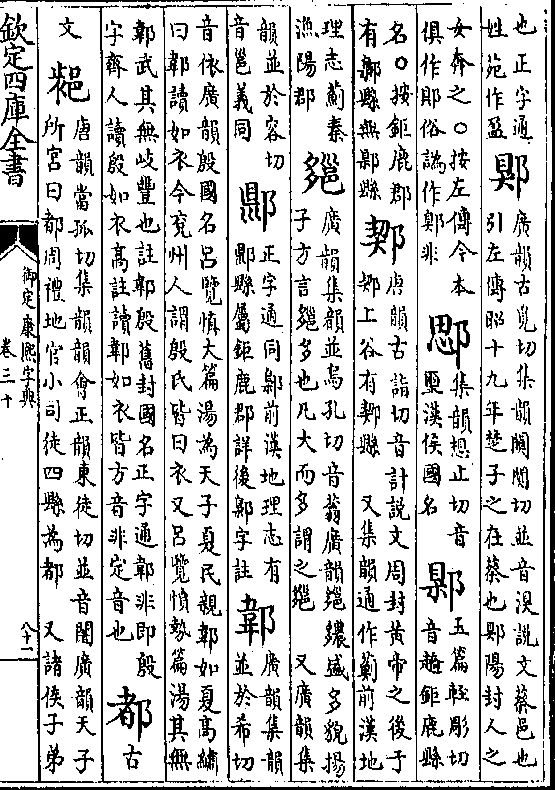 也正字通
姓苑作盈
郹
廣韻古覓切集韻闃闃切並音湨說文蔡邑也
引左傳昭十九年楚子之在蔡也郹陽封人之
女奔之○按左傳今本
俱作郹俗譌作鄓非
集韻想止切音
璽漢侯國名
郻
玉篇輕彫切
音趬鉅鹿縣
名○按鉅鹿郡
有鄡縣無郻縣
唐韻古詣切音計說文周封黃帝之後于
上谷有縣 又集韻通作薊前漢地
理志薊秦
漁陽郡
廣韻集韻並烏孔切音蓊廣韻盛多貌揚
子方言多也凡大而多謂之 又廣韻集
韻並於容切
音邕義同
正字通同鄡前漢地理志有
縣屬鉅鹿郡詳後鄡字註
郼
廣韻集韻
並於希切
音依廣韻殷國名呂覽慎大篇湯為天子夏民親郼如夏高繡
曰郼讀如衣今兗州人謂殷氏皆曰衣又呂覽慎勢篇湯其無
郼武其無岐豐也註郼殷舊封國名正字通郼非即殷
字齊人讀殷如衣高註讀郼如衣皆方音非定音也
都
古
文
唐韻當孤切集韻韻會正韻東徒切並音闍廣韻天子
所宮曰都周禮地官小司徒四縣為都 又諸侯子弟
欽定四庫全書
御定康熙字典
卷三十
八十一